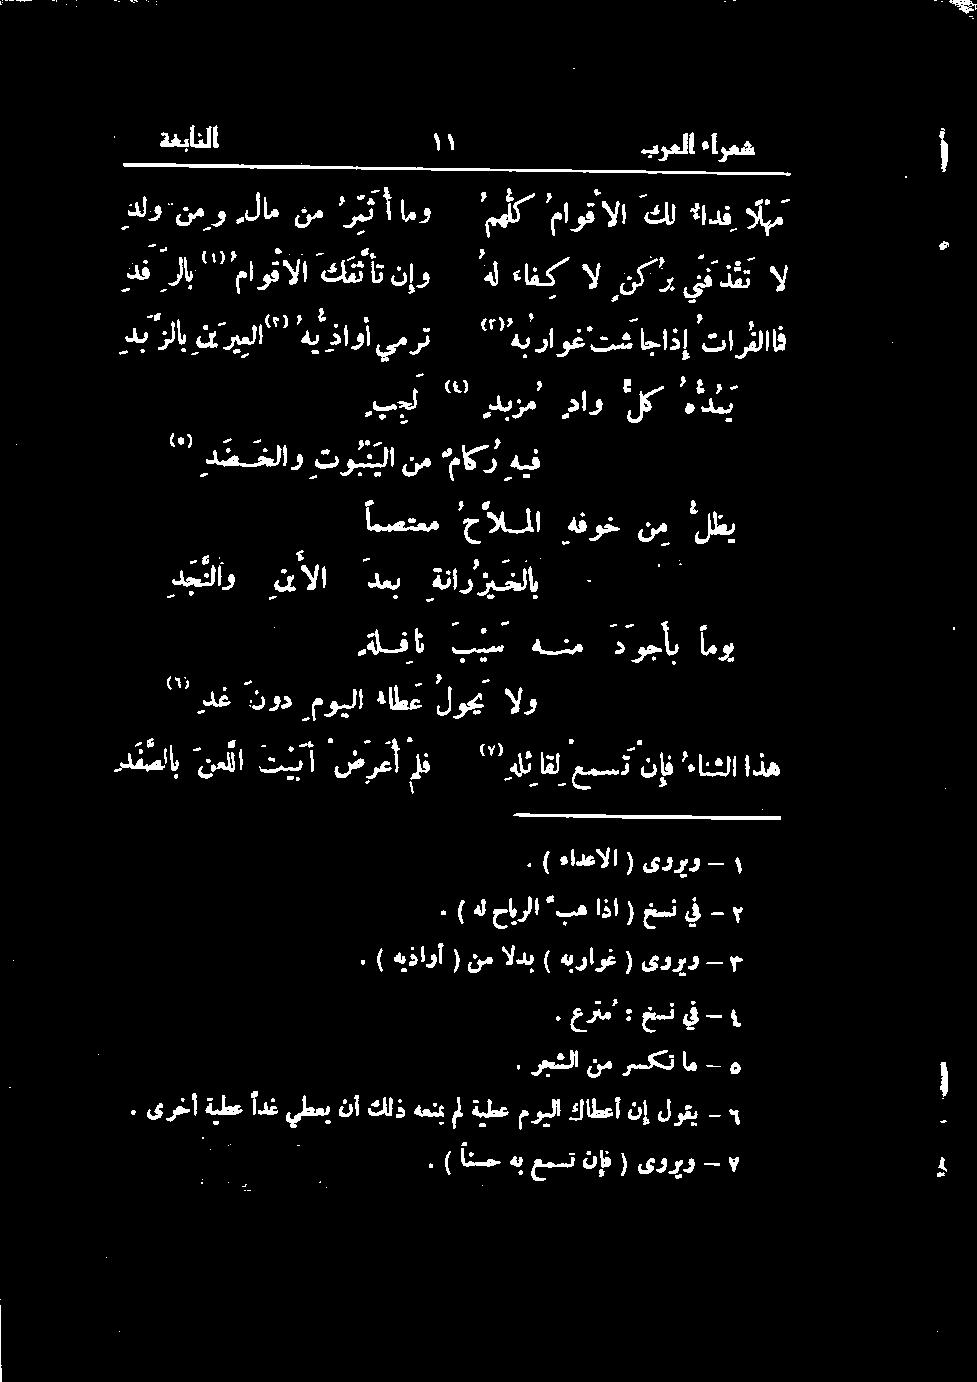 شعراء العرب ١١ النابغة
مَهْلًا فِداءٌ لكَ الأقوامُ كلُّهمُ وما أُثَمِّرُ من مالٍ ومن ولدِ
لا تَقْذِفَنّي بُركنٍ لا كِفاءَ لهُ وإن تأثَّفَكَ الأقوامُ (١) بالرِّفَدِ
فاالفُراتُ إذاجاشت غواربُهُ (٣) ترمي أواذيُّهُ (٢) العِبرَينِ بالزَّبدِ
يَمُدُّهُ كلُّ وادٍ مُزبدٍ (٤) لَجِبٍ
فيهِ رُكامٌ من اليَنْبُوتِ والخَـضَدِ (٥)
يظلُّ مِن خوفهِ المـلاَّحُ معتصماً
بالخَـيزُرانةِ بعدَ الأَينِ والنَّجَدِ
يوماً بأجوَدَ منـه سَيْبَ نافِـلةٍ
ولا يَحُولُ عَطاءُ اليومِ دونَ غدِ (٦)
هذا الثناءُ فإنْ تَسمعْ لقائلهِ (٧) فلمْ أُعَرِّضْ أَبَيْتَ اللَّعنَ بالصَّفَدِ
١ – ويروى ( الاعداء ) .
٢ – في نسخ ( اذا هبَّ الرياح له ) .
٣ – ويروى ( غواربه ) بدلا من ( أواذيه ) .
٤ – في نسخ : مُترع .
٥ – ما تكسر من الشجر .
٦ – يقول إن أعطاك اليوم عطية لم يمنعه ذلك أن يعطي غداً عطية أخرى .
٧ – ويروى ( فإن تسمع به حسناً ) .